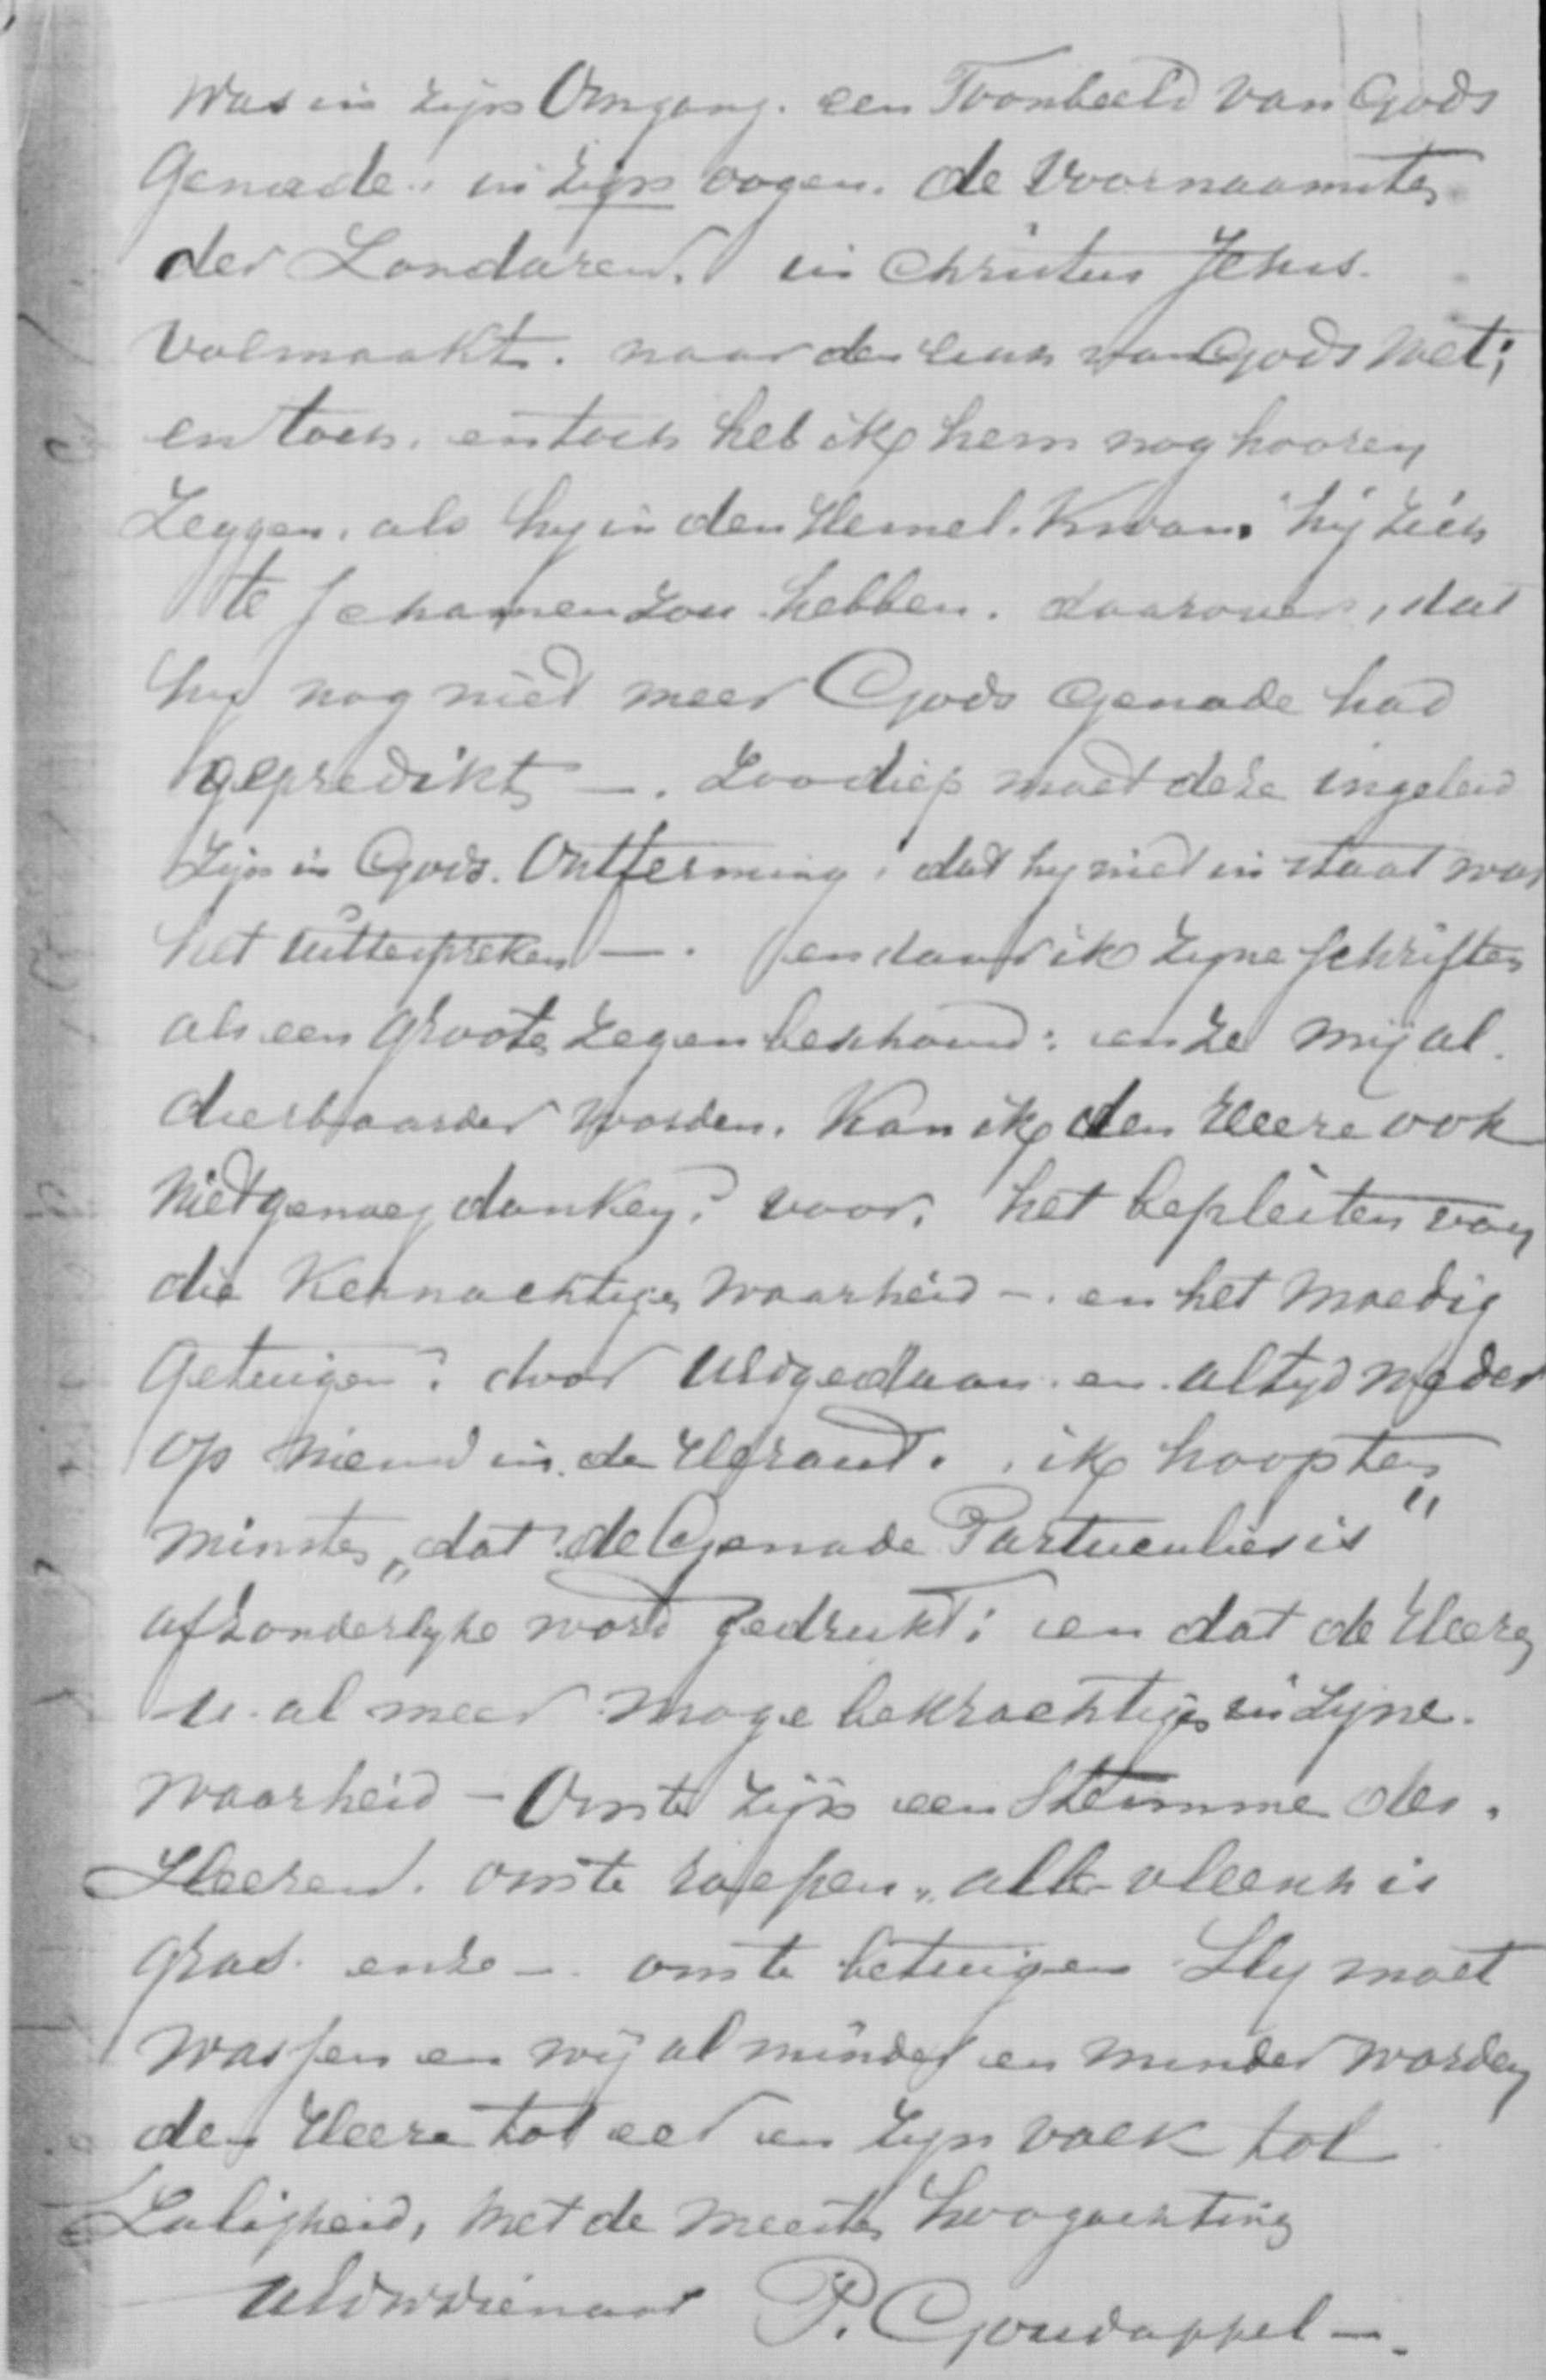 Was in zijn Omgang. een Toonbeeld van Gods
Genade. in zijn oogen. de Voornaamste
der Zondaren. in Christus Jesus.
Volmaakt. naar den eisch van Gods Wet;
en toch. en toch heb ik hem nog hooren
Zeggen. als hy in den Hemel. Kwam. hij zich
te schamen zou hebben. daarover, dat
hy nog niet meer Gods genade had
gepredikt —. Zoo diep moet deze ingeleid
zijn in Gods. Ontferming. dat hy niet in staat was
het uittespreken —. en daar ik zyne schriften
als een groote zegen beschouw: en ze mij al.
dierbaarder worden. Kan ik den Heere ook
niet genoeg danken? voor. het bepleiten van
die Kernachtige Waarheid —. en het moedig
getuigen. door UEdgedaan. en altyd weder
op nieuw in. de Heraut. ik hoop ten
minste „dat de Genade Particulier is"
afzonderlyke word gedrukt: en dat de Heere
u. al meer moge bekrachtigen in Zyne.
Waarheid — Om te zijn een Stemme des.
Heeren. om te roepen „alle vleesch is
gras. enzo —. om te betuigen Hy moet
Wassen en wij al minder en minder worden
den Heere tot eer en zyn volk tot
Zaligheid, met de meeste hoogachting
UEdwdienaar P. Goudappel —.